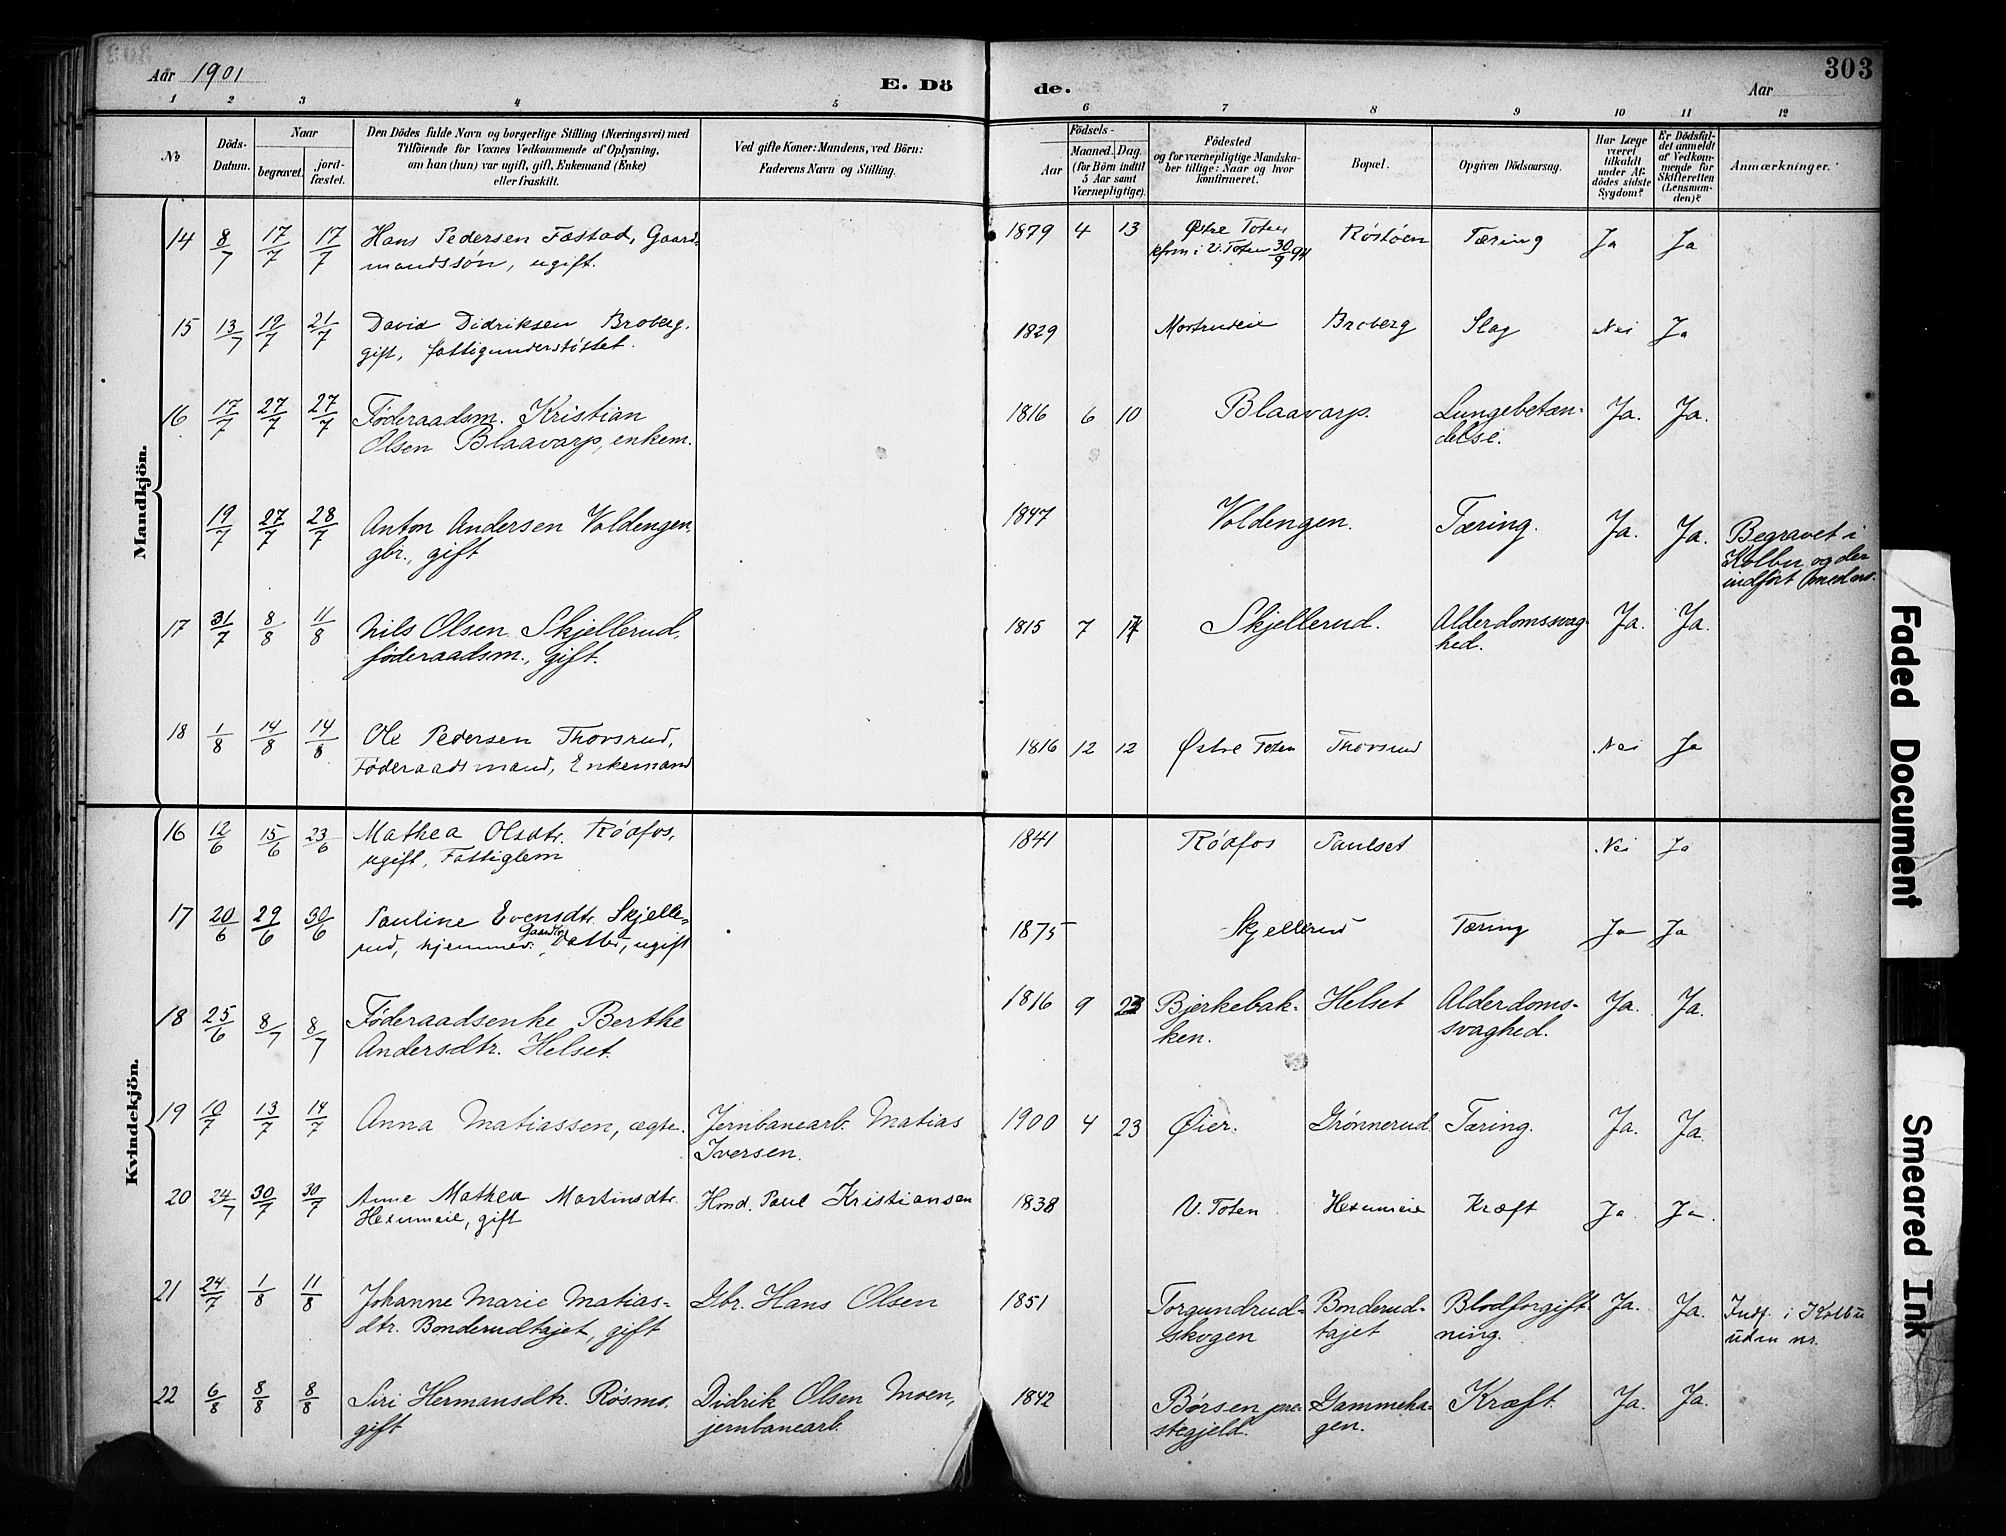 Aar 1901 E. Dö de. Aar 303
1 2 3 4 5 6 7 8 9 10 11 12
No
Döds-Datum.
Naar
begravet.
jord-fæstet.
Den Dödes fulde Navn og borgerlige Stilling (Næringsvei) med
Tilföiende for Voxnes Vedkommende af Oplysning,
om han (hun) var ugift, gift, Enkemand (Enke)
eller fraskilt.
Ved gifte Koner: Mandens, ved Börn:
Faderens Navn og Stilling.
Födsels-
Aar
Maaned. Dag.
(for Börn indtil
5 Aar samt
Værnepligtige).
Födested
og for værnepligtige Mandska-
ber tillige: Naar og hvor
konfirmeret.
Bopæl.
Opgiven Dödsaarsag.
Har Læge
været
tilkaldt
under Af-
dödes sidste
Sygdom?
Er Dödsfal-
det anmeldt
af Vedkom-
mende for
Skifteretten
(Lensman-
den)?
Anmærkninger.
Mandkjön.
14 8/7 17/7 17/7 Hans Pedersen Fastad, Gaard- 1879 4 13 Østre Toten Røstøen Tæring Ja Ja
mandssøn, ugift. kfrm i V. Toten 30/9 94
15 13/7 19/7 21/7 David Didriksen Broberg, 1829 Mostrudeie Broberg Slag Nei Ja
gift, fattigunderstøttet.
16 17/7 27/7 27/7 Føderaadsm. Kristian 1816 6 10 Blaavarp. Lungebetæn- Ja. Ja.
Olsen Blaavarp, enkem. delse.
19/7 27/7 28/7 Anton Andersen Voldengen, 1847 Voldengen. Tæring. Ja. Ja. Begravet i
gbr., gift Kolbu og der
indført
17 31/7 8/8 11/8 Nils Olsen Skjellerud, 1815 7 Skjellerud. Alderdomssvag- Ja. Ja.
føderaadsm., gift. hed.
18 1/8 14/8 14/8 Ole Pedersen Thorsrud, 1816 12 12 Østre Toten Thorsrud Nei Ja
Føderaadsmand, Enkemand
Kvindekjön.
16 12/6 15/6 23/6 Mathea Olsdtr. Rødfos, 1841 Rødfos Paulset Nei Ja
ugift, Fattiglem
17 20/6 29/6 30/6 Pauline Evensdtr. Skjelle- 1875 Skjellerud Tæring Ja Ja
rud, hjemmev. Datter, ugift
18 25/6 8/7 8/7 Føderaadsenke Berthe 1816 9 Bjerkebak- Helset Alderdoms- Ja. Ja.
Andersdtr. Helset. ken. svaghed.
19 10/7 13/7 14/7 Anna Matiassen, ægte. Jernbanearb. Matias 1900 4 23 Øier. Grønnerud. Tæring. Ja. Ja.
Iversen.
20 24/7 30/7 30/7 Anne Mathea Martinsdtr. Hmd. Paul Kristiansen 1838 V. Toten Hexumeie Kræft Ja. Ja.
Hexumeie, gift
21 24/7 1/8 11/8 Johanne Marie Matias- Gbr. Hans Olsen 1851 Torgundrud- Bonderud- Blodforgift- Ja. Ja. Indf. i Kolbu
dtr. Bonderudtajet, gift skogen tajet ning. uden nr.
22 6/8 8/8 8/8 Siri Hermansdtr. Røsmo. Didrik Olsen Moen, 1842 Børsen pre- Gammeha- Kræft. Ja. Ja.
gift jernbanearb. stegjeld. gen.
Faded Document
Smeared Ink